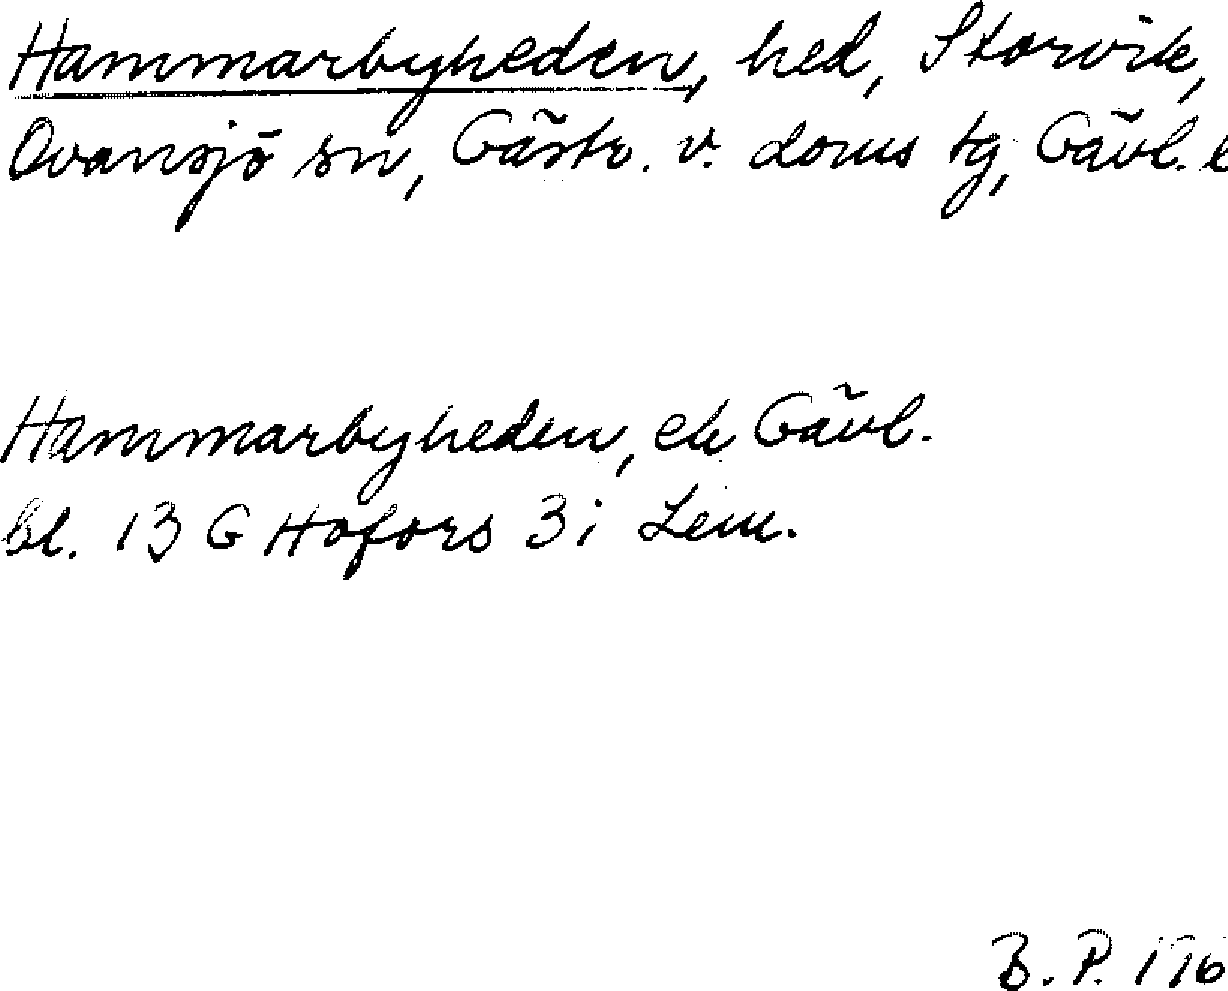 Hammarbyheden, hed, Storvik,
Ovansjö sn, Gästr. v. doms tg, Gävl. l
Hammarbyheden, ek Gävl.
bl. 13 G Hofors 3 i Lem.
B. P. 196